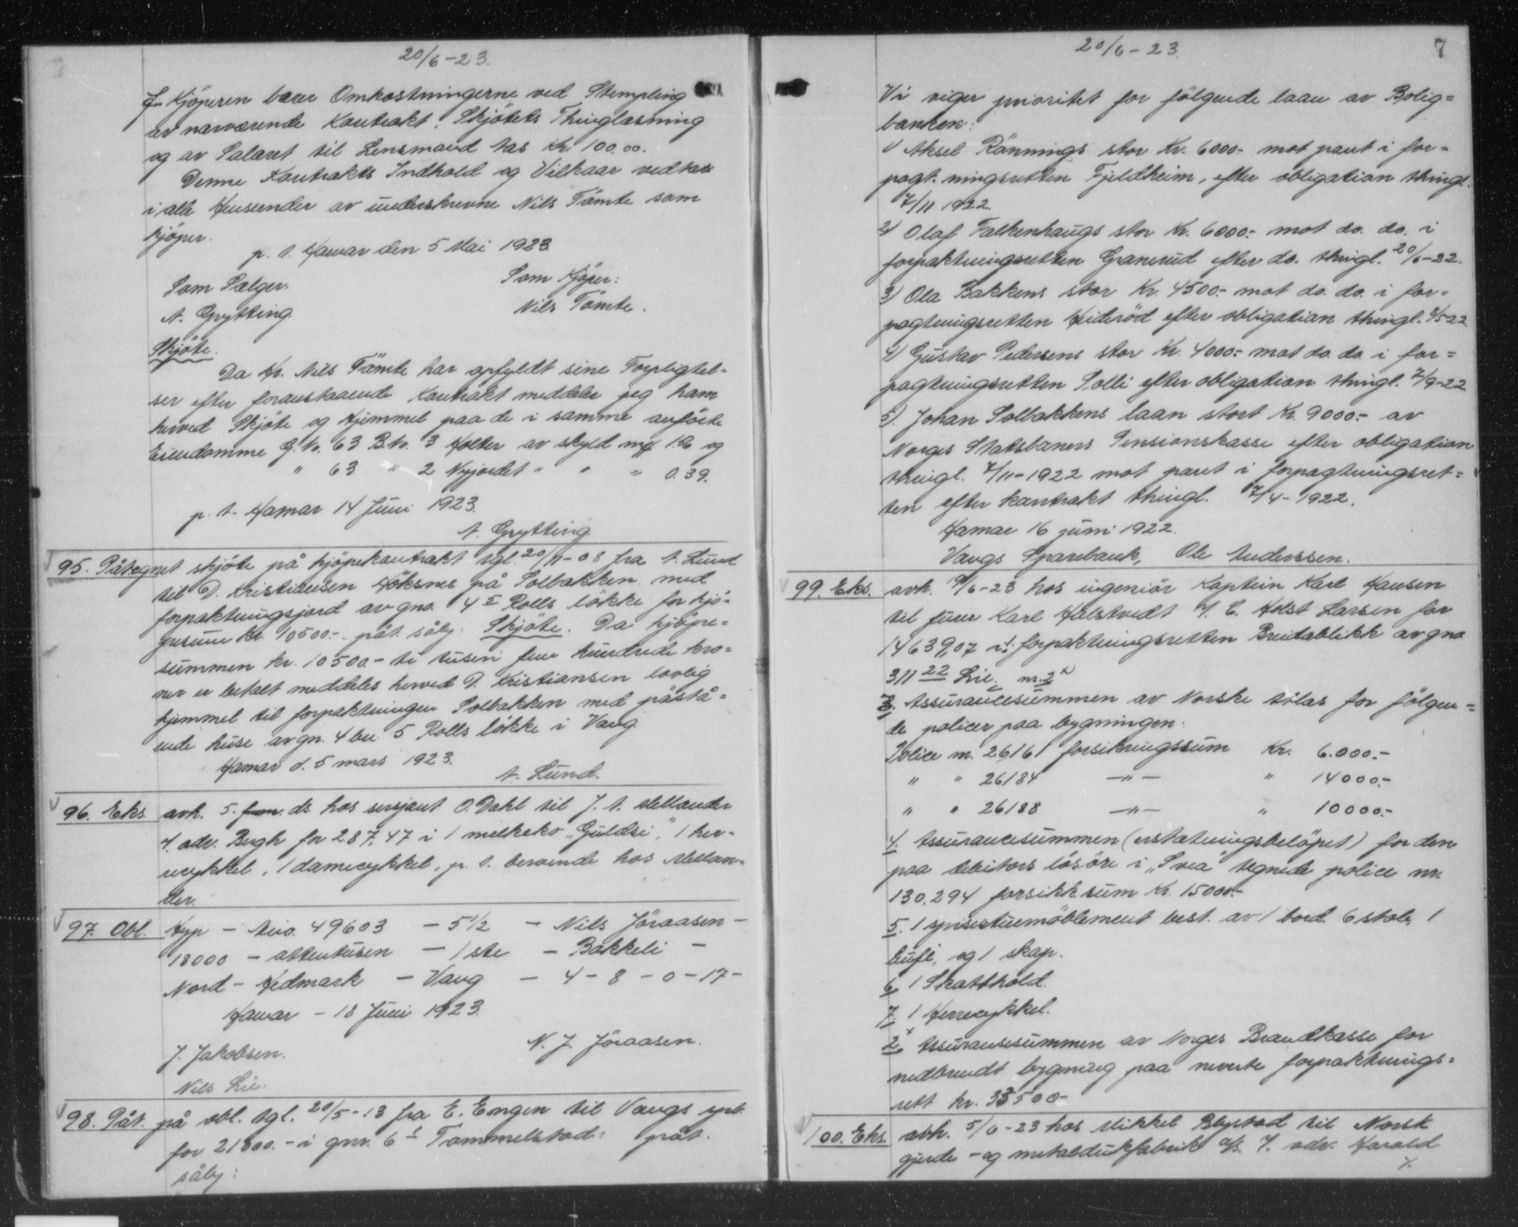 20/6-23.
f. Kjöperen bærer Omkostningerne ved Stempling
av nærværende Kontrakt, Skjötets Thinglæsning
og av Salaret til Lensmand has Kr 100.00.
Denne Kontrakts Indhold og Vilkaar vedtas
i alle Henseender av underskrevne Nils Tömte som
kjöper.
p. t. Hamar den 5 Mai 1923
Som Sælger.
Som Kjöper:
A. Grytting
Nils Tömte.
Skjöte.
Da Hr. Nils Tömte har opfyldt sine Forpligtel-
ser efter foranstaaende Kontrakt meddeler jeg ham
herved Skjöte og Hjemmel paa de i samme anförte
Eiendomme G.No. 63 B.No. 3 Holter av skyld mk 1.16 og
" 63 " 2 Nyjordet " " " 0.39.
p. t. Hamar 14 Juni 1923.
A. Grytting
95. Påtegnet skjöte på kjöpekontrakt tgl. 20/11-08 fra A. Lund
til D. Kristiansen Hoksnes på Solbakken med
forpaktningsjord av gno. 4 5 Rolls lökke for kjö-
pesum kr 10500.- påt. sålj. Skjöte. Da kjöpe-
summen kr. 10500- ti tusen fem hundrede kro-
ner er betalt meddeles herved D. Kristiansen lovlig
hjemmel til forpaktningen Solbakken med påstå-
ende huse av gn. 4 bn 5 Rolls lökke i Vang
Hamar d. 5 mars 1923.
A. Lund.
96. Eks. avh. 5. ds hos sersjant O. Dahl til J. A. Mellander
f. adv. Bugh for 287,47 i 1 melkeko "Guldsi", 1 her-
recykkel, 1 damecykkel, p. t. beroende hos Mellan-
der.
97. Obl. Hyp - Avd. 49603 - 5½ - Nils Jöraasen -
18000 - attentusen - 1ste - Bakkeli -
Nord-Hedmark - Vang - 4 - 8 - 0 - 17 -
Hamar - 18 Juni 1923.
J. Jakobsen.
N. J. Jöraasen.
Nils Lie.
98. Påt. på obl. tgl. 20/5-13 fra E. Engen til Vangs spb.
for 21800.- i gnr. 6 1 Tommelstad: påt.
sålj:
20/6-23.
7
Vi viger prioritet for fölgende laan av Bolig-
banken:
1) Aksel Rönnings stor Kr. 6000.- mot pant i for-
pagtningsretten Fjeldheim, efter obligation thingl.
7/11 1922
2) Olaf Falkenhaugs stor Kr. 6000.- mot do. do. i
forpaktningsretten Granerud efter do. thingl. 20/6-22.
3) Ola Bakkens stor Kr. 4500.- mot do. do. i for-
pagtningsretten Heiteröd efter obligation thingl. /5-22
4) Gustav Pedersens stor Kr. 4000.- mot do. do. i for-
pagtningsretten Solli efter obligation thingl. 7/9-22
5) Johan Solbakkens laan stort Kr. 9000.- av
Norges Statsbaners Pensionskasse efter obligation
thingl. 7/11-1922 mot pant i forpagtningsret-
ten efter kontrakt thingl. /4-1922.
Hamar 16 juni 1922.
Vangs Sparebank, Ole Anderssen.
99. Eks. avh. /6-23 hos ingeniör Kaptein Karl Hansen
til firma Karl Halstvedt v/ C. Holst Larsen for
14639,07 i 1. forpaktningsretten Breidablikk av gno
311 22 Lil. nr. 2
3. Assurancesummen av Norske Atlas for fölgen-
de policer paa bygningen:
Police nr. 26161 forsikringssum Kr. 6.000.-
" " 26184 -"- " 14000.-
" " 26188 -"- " 10000.-
4. Assurancesummen (erstatningsbelöpet) for den
paa debitors lösöre i "Svea" tegnede police nr.
130.294 forsikr.sum Kr. 15000.-
5. 1 spisestuemöblement best. av 1 bord, 6 stole, 1
bufé, og 1 skap.
6. 1 Skatthold.
7. 1 Herrecykkel.
2. Assurancesummen av Norges Brandkasse for
nedbrendt bygning paa nevnte forpaktnings-
rett kr. 33500-
100. Eks. avh. 5/6-23 hos Mikkel Blystad til Norsk
gjerde- og metaldukfabrik a/s. f. adv. Harald